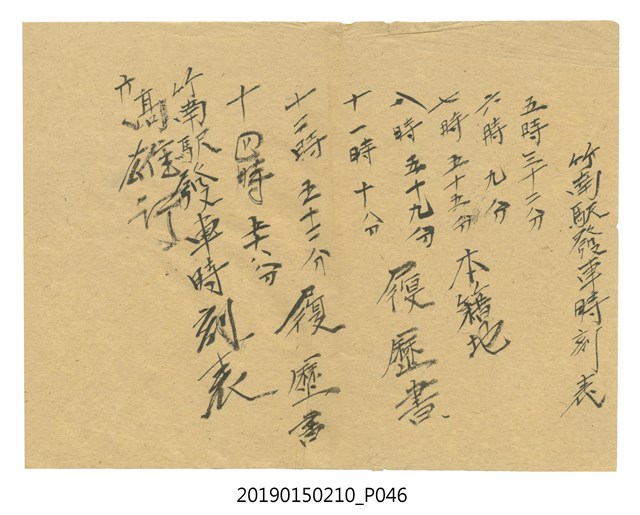 竹南駅發車時刻表
五時三十二分
六時九分
七時五十五分 本籍地
八時五十九分 履歷書
十一時十分
十二時五十二分 履歷書
十四時
竹南駅發車時刻表
高雄
20190150210_P046